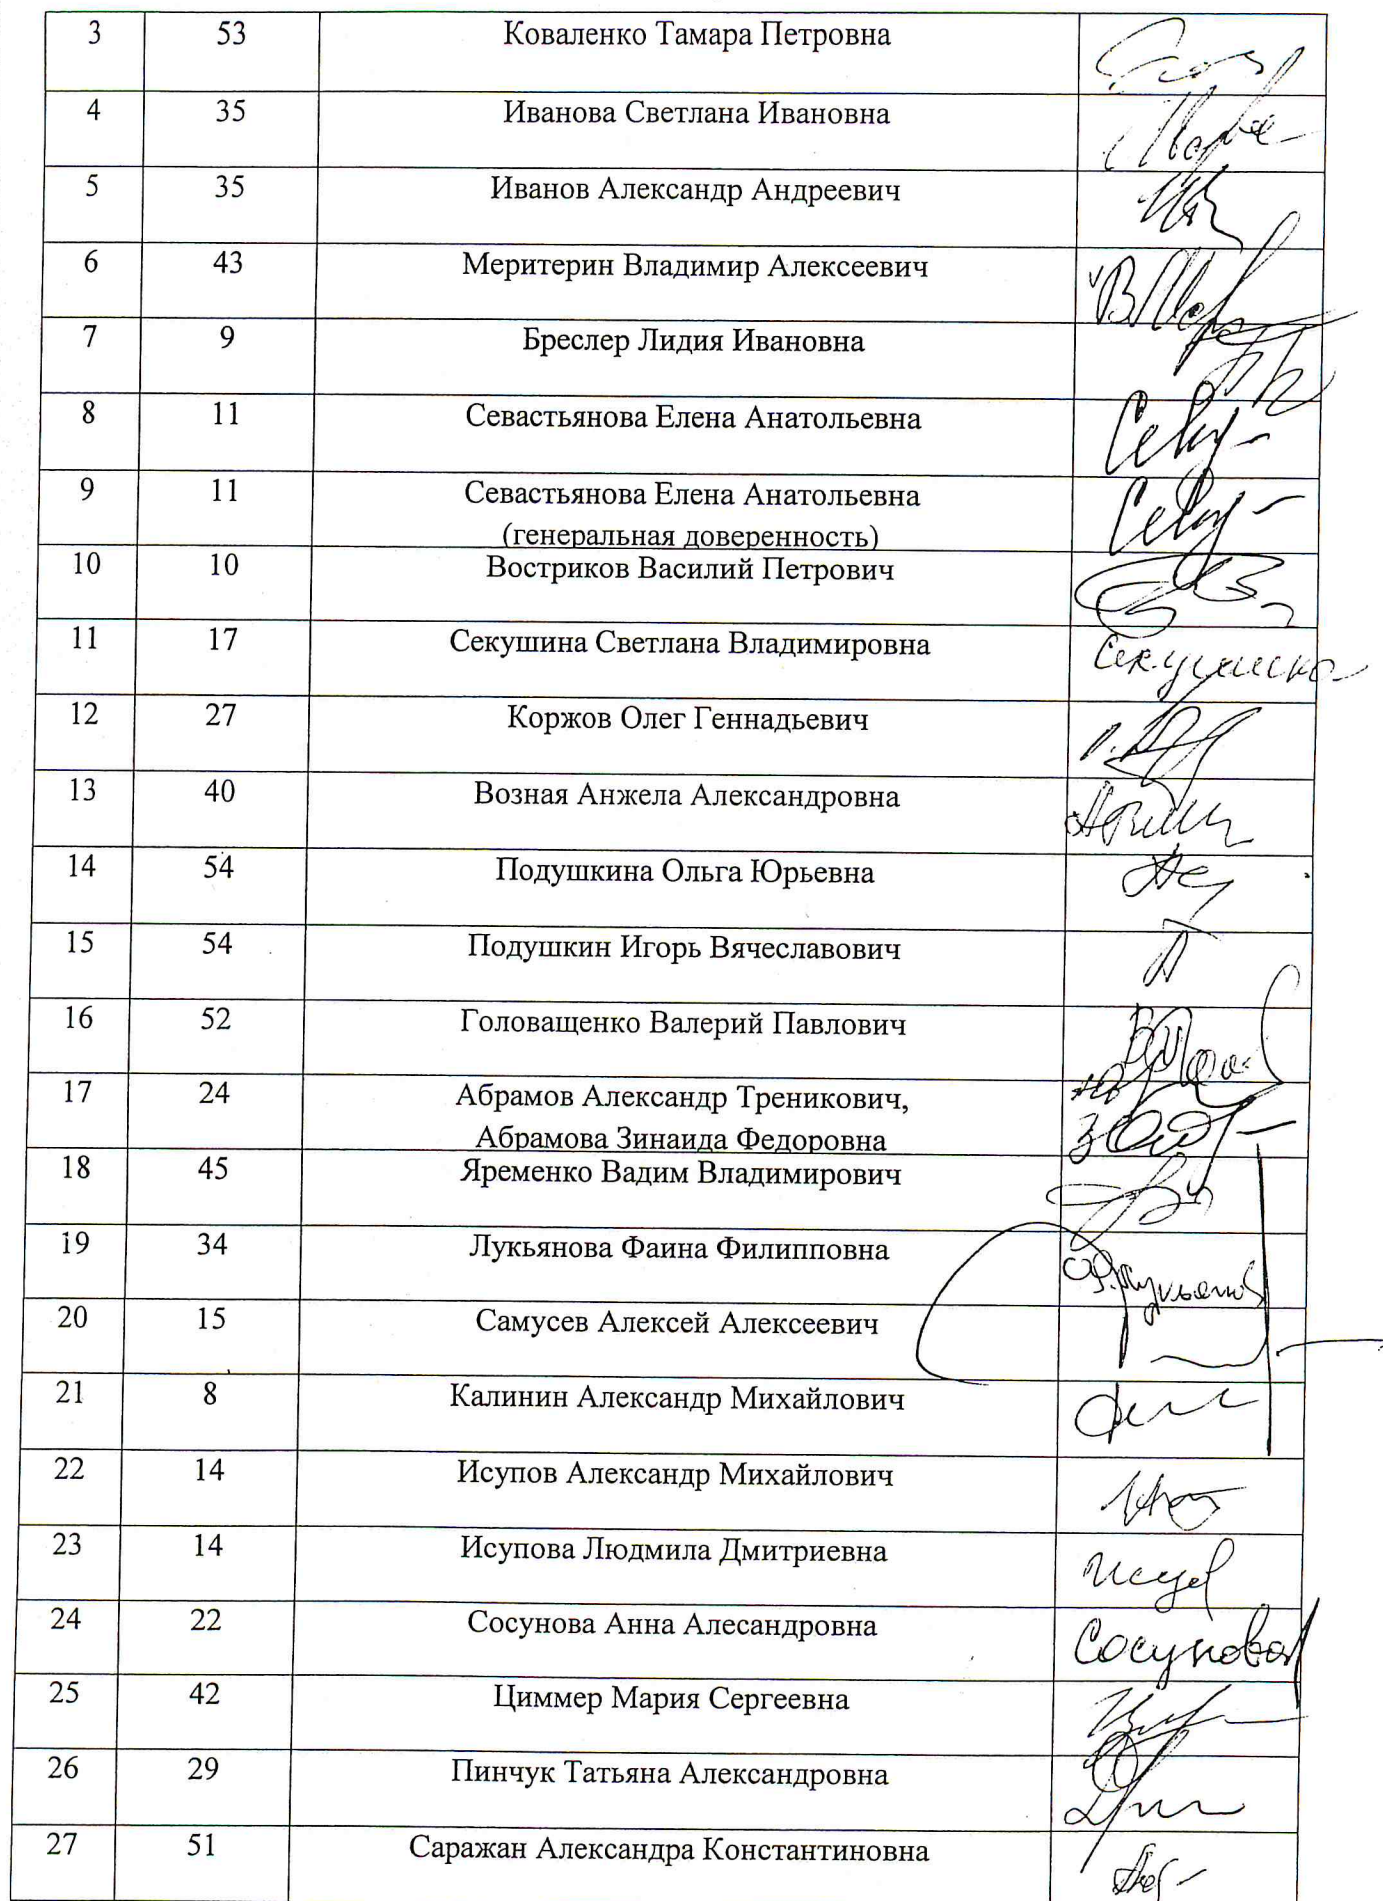 3 53 Коваленко Тамара Петровна
4 35 Иванова Светлана Ивановна
5 35 Иванов Александр Андреевич
6 43 Меритерин Владимир Алексеевич
7 9 Бреслер Лидия Ивановна
8 11 Севастьянова Елена Анатольевна
9 11 Севастьянова Елена Анатольевна
(генеральная доверенность)
10 10 Востриков Василий Петрович
11 17 Секушина Светлана Владимировна
12 27 Коржов Олег Геннадьевич
13 40 Возная Анжела Александровна
14 54 Подушкина Ольга Юрьевна
15 54 Подушкин Игорь Вячеславович
16 52 Головащенко Валерий Павлович
17 24 Абрамов Александр Треникович,
Абрамова Зинаида Федоровна
18 45 Яременко Вадим Владимирович
19 34 Лукьянова Фаина Филипповна
20 15 Самусев Алексей Алексеевич
21 8 Калинин Александр Михайлович
22 14 Исупов Александр Михайлович
23 14 Исупова Людмила Дмитриевна
24 22 Сосунова Анна Алесандровна Сосунова
25 42 Циммер Мария Сергеевна
26 29 Пинчук Татьяна Александровна
27 51 Саражан Александра Константиновна